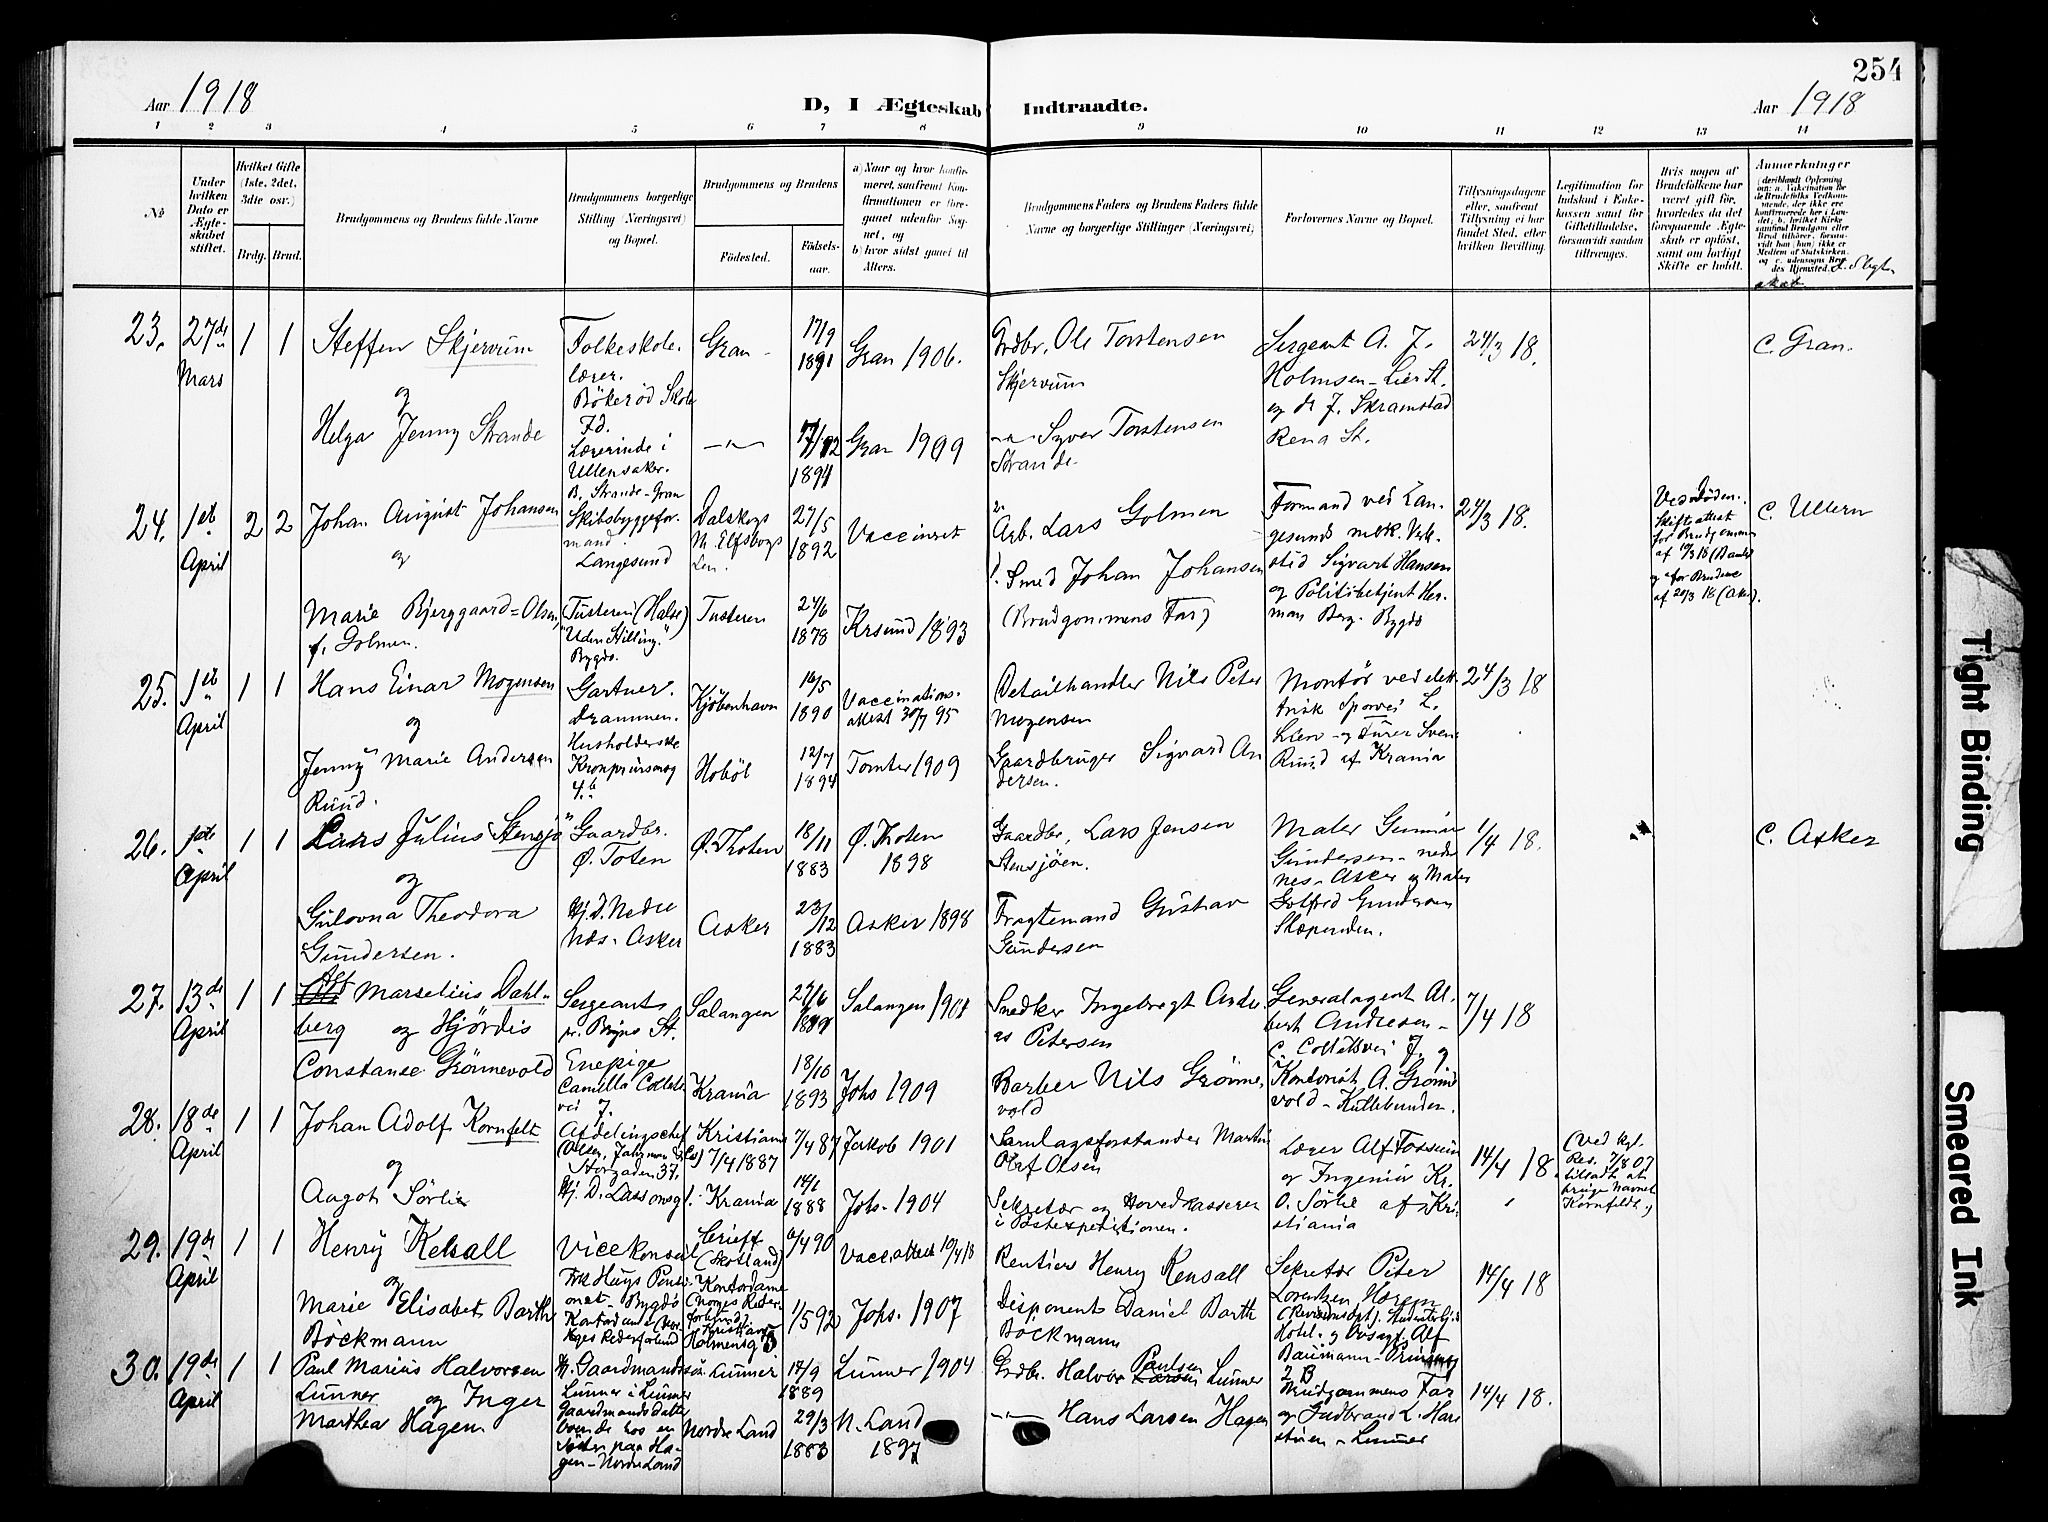 254
Aar 1918
D, I Ægteskab Indtraadte.
Aar 1918
1 2 3 4 5 6 7 8 9 10 11 12 13 14
No
Under hvilken Dato er Ægteskabet stiftet.
Hvilket Gifte (1ste, 2det, 3die osv.)
Brdg. Brud.
Brudgommens og Brudens fulde Navne
Brudgommens borgerlige Stilling (Næringsvei) og Bopæl.
Brudgommens og Brudens
Fødested.
Fødselsaar.
a) Naar og hvor konfirmeret, saafremt Konfirmationen er foregaaet udenfor Sognet, og
b) hvor sidst gaaet til Alters.
Brudgommens Faders og Brudens Faders fulde Navne og borgerlige Stillinger (Næringsvei)
Forlovernes Navne og Bopæl.
Tillysningsdagene eller, saafremt Tillysning ei har fundet Sted, efter hvilken Bevilling.
Legitimation for Indskud i Enkekassen samt for Giftetilladelse, forsaavidt saadan tiltrænges.
Hvis nogen af Brudefolkene har været gift før, hvorledes da det foregaaende Ægteskab er opløst, samt om lovligt Skifte er holdt.
Anmerkninger
(deriblandt Oplysning om: a. Vakcination for de Brudefolks Vedkommende, der ikke ere konfirmerede her i Landet, b. hvilket Kirkesamfund Brudgom eller Brud tilhører, forsaavidt han (hun) ikke er Medlem af Statskirken, og c. udensogns Brudes Hjemsted.
23. 27de Mars 1 1
Steffen Skjervum
og
Helga Jenny Strande
Folkeskole-
lærer.
Bökeröd Skole
Fd.
Lærerinde i
Ullensaker.
B. Strande - Gran
Gran
17/9
1891
Gran 1906.
1894
Gran 1909
Grdbr. Ole Torstensen
Skjervum
Syver Torstensen
Strande
Sergeant A. J.
Holmsen - Lier St.
og dr J. Skramstad
Rena St.
24/3 18.
c. Gran.
24. 1st April 2 2
Johan August Johansen
og
Marie Bjerggaard-Olsen,
f. Golmen.
Skibsbyggefor-
mand.
Langesund
Tusteren (Halse)
"Uden Stilling."
Bygdö.
Dalskogs
N. Elfsborgs
Len.
Tusteren
27/5
1892
24/6
1878
Vaccineret
Krsund 1893
Arb. Lars Golmen
Smed Johan Johansen
(Brudgommens Far)
Formand ved Lan-
gesunds mek. Verk-
sted Sigvart Hansen
og Politibetjent Her-
man Berg. Bygdö
24/3 18.
Ved Döden.
Skifteattest
for Brudgommen
af 19/3 18 (Bamble)
og for Brudene
af 20/3 18 (Aker).
c. Ullern
25. 1st April 1 1
Hans Einar Mogensen
og
Jenny Marie Andersen
Ruud.
Gartner.
Drammen.
Husholderske
Kronprinsensg
4.b
Kjöbenhavn
Hoböl
16/5
1890
12/7
1894
Vaccinations-
attest 30/7 95
Tomter 1909
Detailhandler Nils Peter
Mogensen
Gaardbruger Sigvard An
dersen.
Montör ved elek-
trisk Sporvei L.
Lien - og Fürer Sven
Ruud af Krania
24/3 18
26. 1ste April 1 1
Lars Julius Stensjö
og
Gulovna Theodora
Gundersen.
Gaardbr.
Ø. Toten
Hj. D. Nedre
Næs - Asker
Ø. Thoten
Asker
18/11
1883
23/12
1883
Ø. Thoten
1898
Asker 1898
Gaardbr. Lars Jensen
Stensjöen.
Fragtemand Gustav
Gundersen
Maler Gunnar
Gundersen - nedre
Nes - Asker og Maler
Gotfred Gundersen
Slependen.
1/4 18.
c. Asker
27. 13de April 1 1
Marselius Dahl-
berg og Hjördis
Constanse Grönnevold
Sergeant
Enepige
Camilla Collets
vei 7.
Salangen
Krania
18/10
1893
Salangen
Johs 1909
Snedker Ingebregt Andre-
as Petersen
Barber Nils Grönne-
vold
Generalagent Al-
bert Andresen -
C. Colletsvei 7. og
Kontorist A. Grönne
vold - Kullebunden.
7/4 18
28. 18de April 1 1
Johan Adolf Kornfelt
og
Aagot Sörlie
Afdelingschef
Storgaden 37.
Hj. D. Lassonsg 1.
Kristiania
7/4 1887
Krania
7/4 87
14/1
1888
Jakob 1901
Johs. 1904
Samlagsforstander Martin
Olaf Olsen
Sekretær og Hovedkasserer
i Postexpeditionen.
Lærer Alf Fossum
og Ingeniör Kr.
O. Sörlie af Kri-
stiania
14/4 18.
(Ved kgl.
Res. 7/8 07
tilladt at
bruge navnet
Kornfeldt.)
29. 19de April 1 1
Henry Kelsall
og
Marie Elisabet Barth
Böckmann
Vicekonsul
Frk Huys Pensi-
onat. Bygdö
Crieff
(Skotland)
Kontordame
6/4 90
1/5 92
Vacc. attest 10/4 18
Johs. 1907
Rentier Henry Kensall
Disponent Daniel Barth
Böckmann
Sekretær Peter
Lorentzen Horem
Hotel - og Ovsagf. Alf
Baumann - Prinsensg
2 B
14/4 18
30. 19de April 1 1
Paul Marius Halvorsen
Lunner og Inger
Marthea Hagen
Gaardmandssön
Lunner i Lunner
Gaardmandsdatter
boende hos en
Söster paa Ha-
gen - Nordre Land
Lunner
Nordre Land
14/9
1889
29/3
1883
Lunner 1904
N. Land
1897
Grdbr. Halvor Paulsen Lunner
Hans Larsen Hagen
Brudgommens Far
og Gudbrand L. Har
stuen - Lunner
14/4 18.
Tight Binding
Smeared Ink